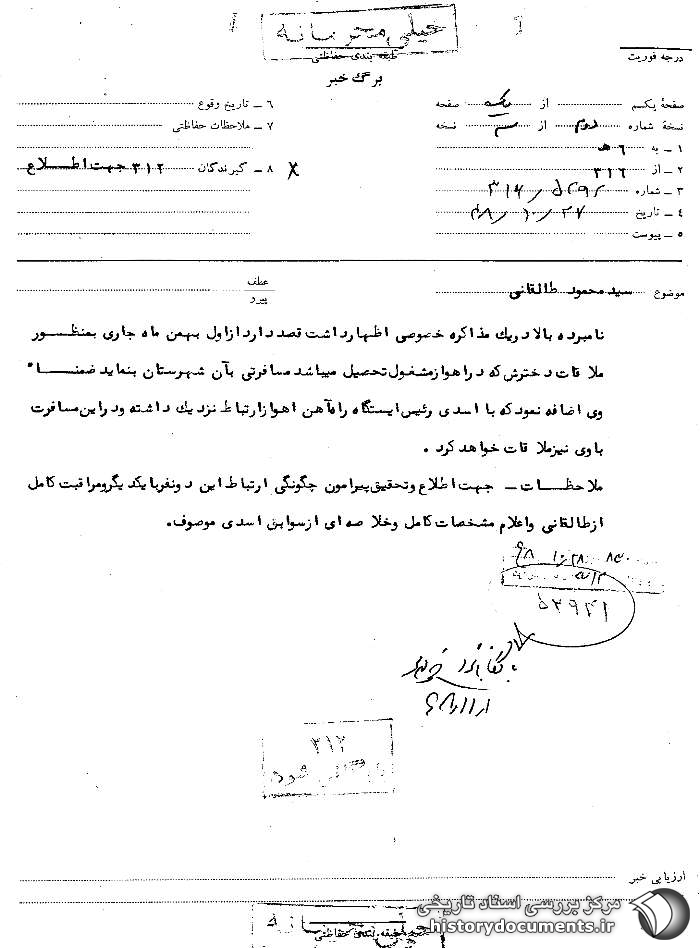 خیلی محرمانه
طبقه بندی حفاظتی
درجه فوریت
برگ خبر
صفحهٔ یکم از یک صفحه
نسخهٔ شماره دوم از سه نسخه
۱ ـ به ۶ هـ
۲ ـ از ۳۱۶
۳ ـ شماره
۴ ـ تاریخ ۴۸/۱۰/۲۷
۵ ـ پیوست
۶ ـ تاریخ وقوع
۷ ـ ملاحظات حفاظتی
۸ ـ گیرندگان ۳۱۲ جهت اطلاع
موضوع سید محمود طالقانی
عطف
پیرو
نامبرده بالا در یک مذاکره خصوصی اظهار داشت قصد دارد از اول بهمن ماه جاری بمنظور
ملاقات دخترش که در اهواز مشغول تحصیل میباشد مسافرتی بآن شهرستان بنماید ضمناً
وی اضافه نمود که با اسدی رئیس ایستگاه راه‌آهن اهواز ارتباط نزدیک داشته و در این مسافرت
با وی نیز ملاقات خواهد کرد .
ملاحظات ـ جهت اطلاع و تحقیق پیرامون چگونگی ارتباط این دو نفر با یکدیگر و مراقبت کامل
از طالقانی و اعلام مشخصات کامل و خلاصه ای از سوابق اسدی موصوف.
۳۱۲
ارزیابی خبر
خیلی محرمانه
طبقه بندی حفاظتی
مرکز بررسی اسناد تاریخی
historydocuments.ir